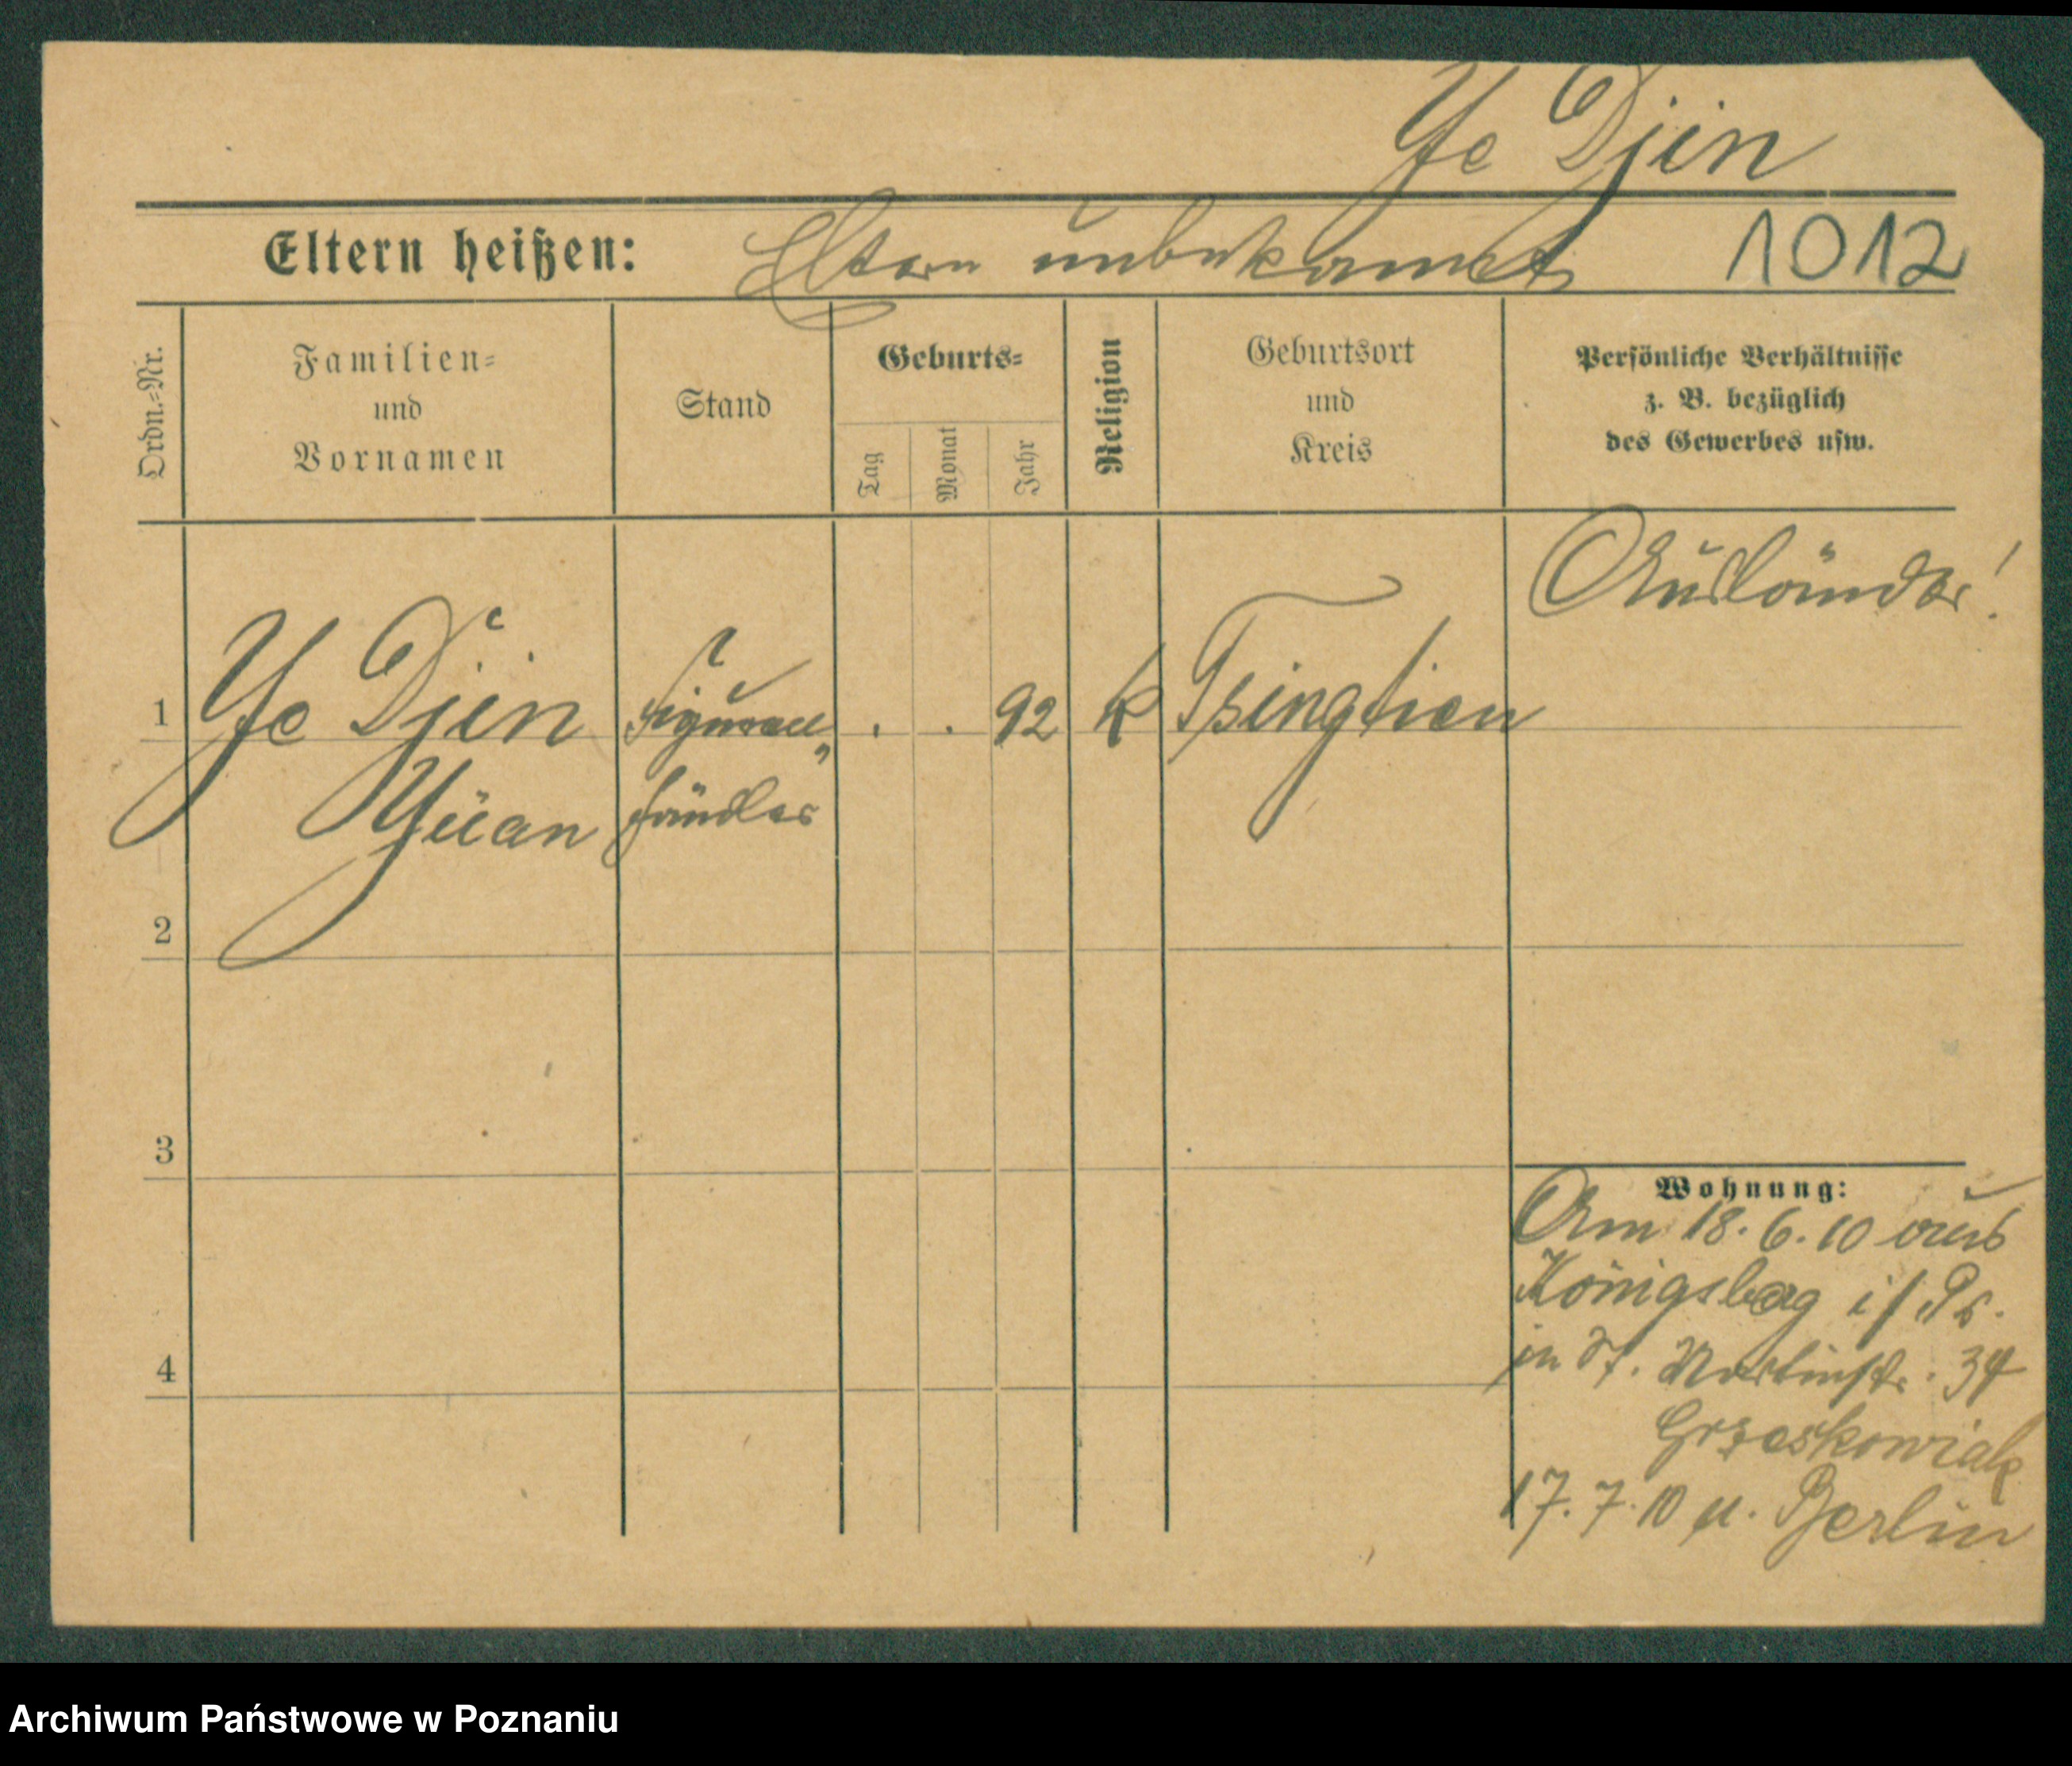 Ye Djin
Eltern heißen: Eltern unbekannt 1012
Ordn.-Nr.
Familien-
und
Vornamen
Stand
Geburts-
Tag
Monat
Jahr
Religion
Geburtsort
und
Kreis
Persönliche Verhältnisse
z. B. bezüglich
des Gewerbes usw.
Ausländer!
1 Ye Djin Figuren . . 92 k Tsingtien
Yüan händler
2
3
4
Wohnung:
Am 18. 6. 10 aus
Königsberg i/ Pr.
in St. Martinstr. 34
Grzeskowiak
17. 7. 10 n. Berlin
Archiwum Państwowe w Poznaniu